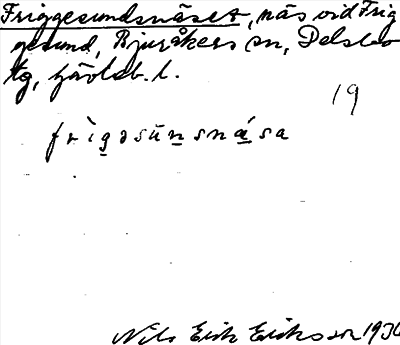 Friggesundsnäset, näs vid Frig
gesund, Bjuråkers sn, Delsbo
tg, Gävleb. l.
19
frìgəsùnsnásа
Nils Erik Eriksson 1936